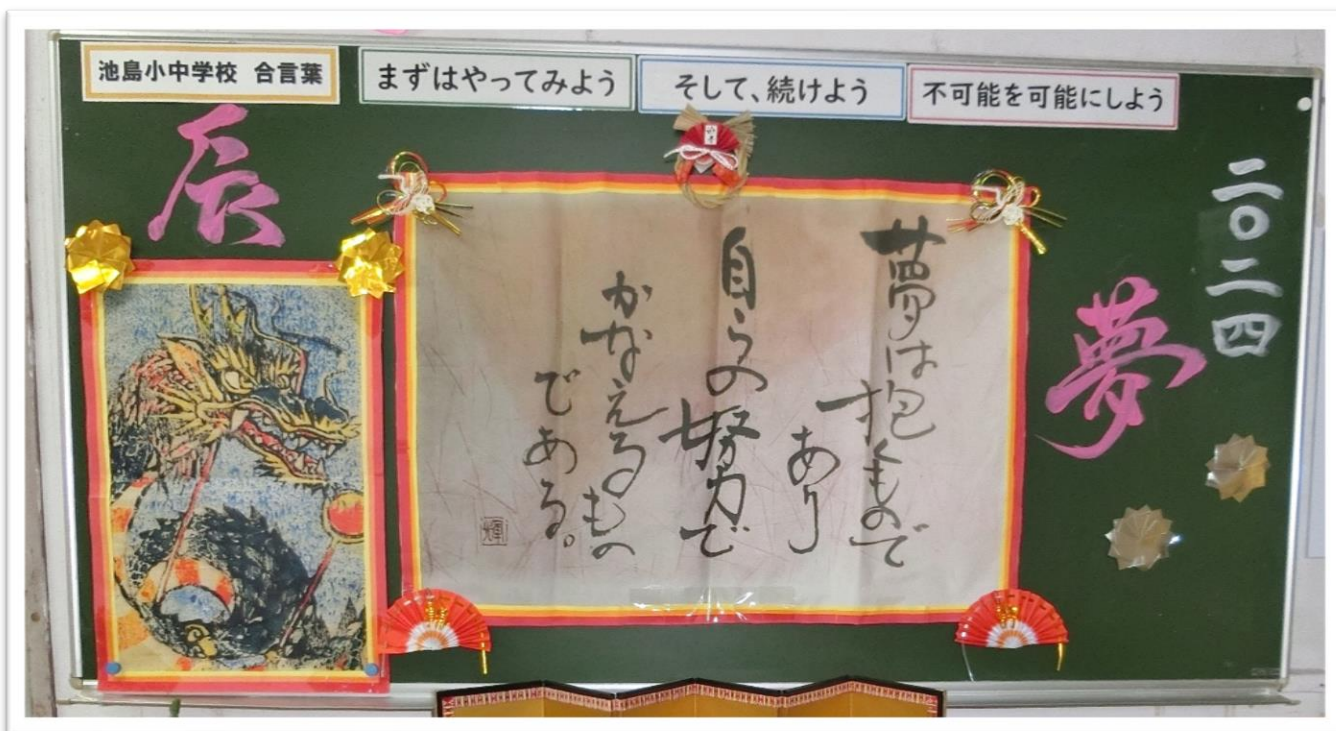 池島小中学校 合言葉
まずはやってみよう
そして、続けよう
不可能を可能にしよう
辰
二〇二四
夢
夢は抱くもので
あり
自らの努力で
かなえるもの
である。
輝